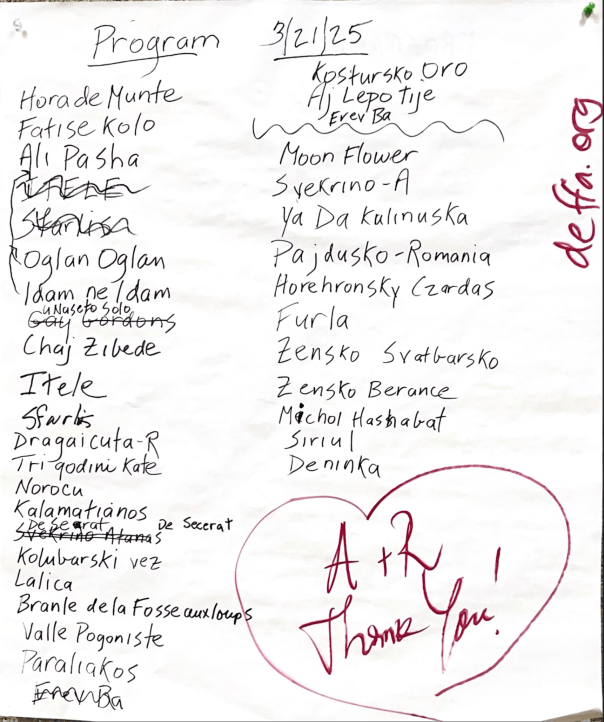 Program 3/21/25
Hora de Munte
Fatise Kolo
Ali Pasha
Oglan Oglan
Idam ne Idam
u Naseto Solo
Gay Gordons
Chaj Zibede
Itele
Sfarlis
Dragaicuta-R
Tri godini Kate
Norocu
Kalamatianos
De Secerat
Svekrino Atanas
Kolubarski vez
Lalica
Branle de la Fosse aux loups
Valle Pogoniste
Paraliakos
Erev Ba
Kostursko Oro
Aj Lepo Tije
Erev Ba
Moon Flower
Svekrino-A
Ya Da Kalinuska
Pajdusko-Romania
Horehronsky Czardas
Furla
Zensko Svatbarsko
Zensko Berance
Michol Hashabat
Siriul
Deninka
A+R
Thank You!
deffa.org